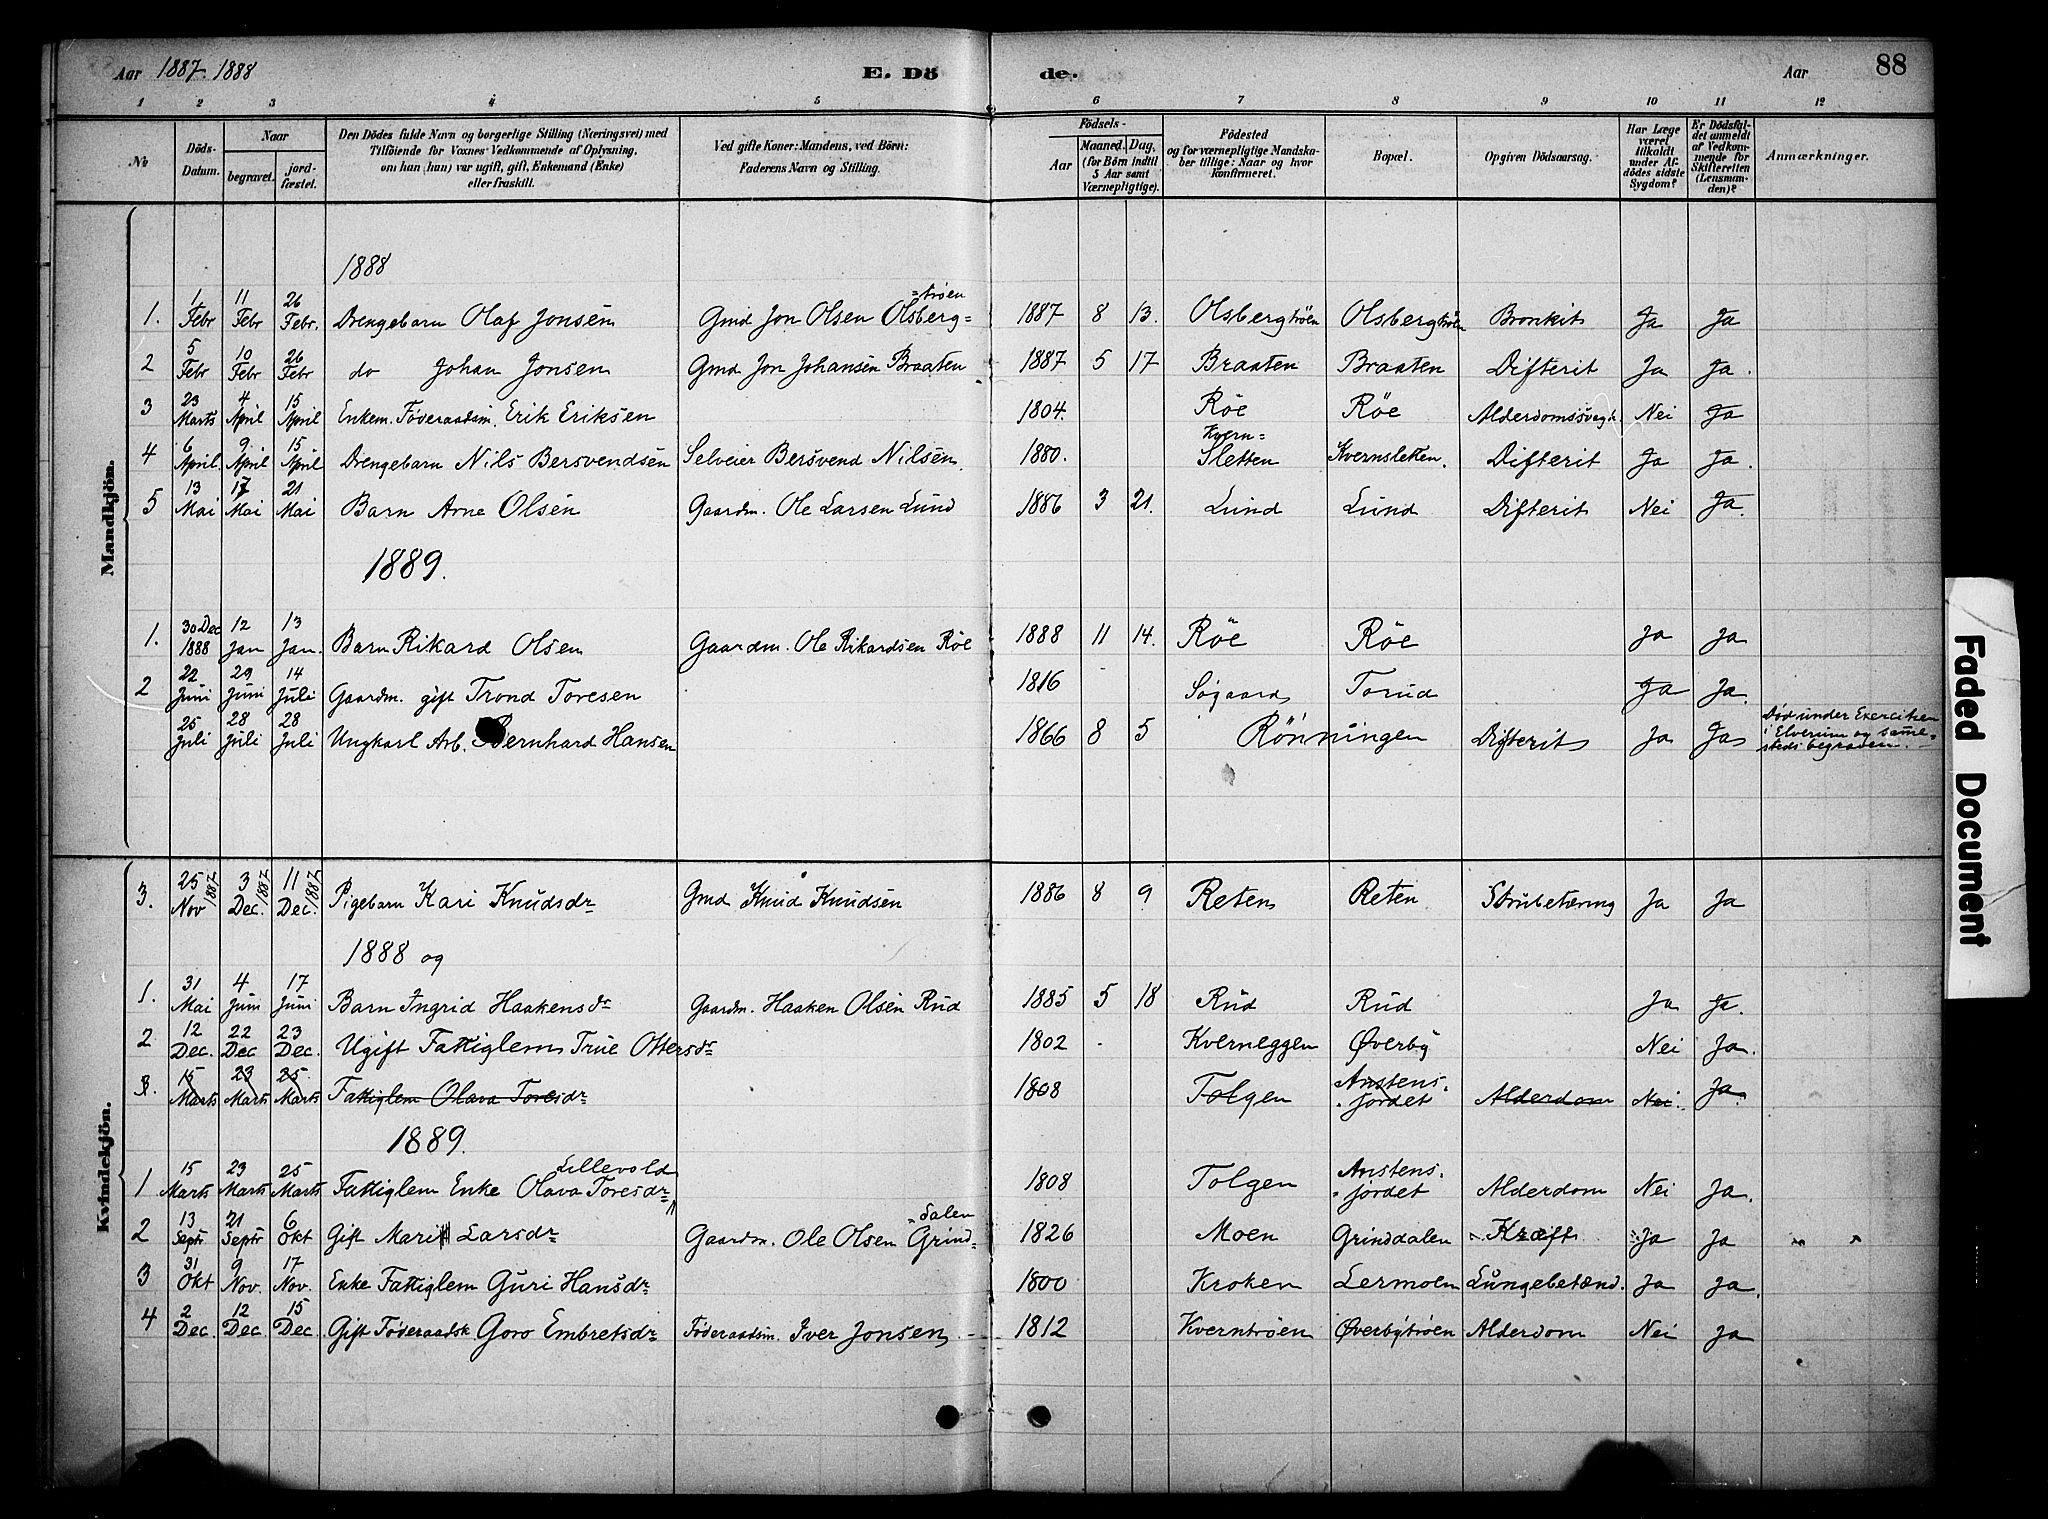 Aar 1887. 1888 E. Dö de. Aar 88
1 2 3 4 5 6 7 8 9 10 11 12
No
Döds-Datum.
Naar
begravet.
jord-fæstet.
Den Dödes fulde Navn og borgerlige Stilling (Næringsvei) med
Tilföiende for Voxnes Vedkommende af Oplysning,
om han (hun) var ugift, gift, Enkemand (Enke)
eller fraskilt.
Ved gifte Koner: Mandens, ved Börn:
Faderens Navn og Stilling.
Födsels-
Aar
Maaned. Dag.
(for Börn indtil
5 Aar samt
Værnepligtige).
Födested
og for værnepligtige Mandska-
ber tillige: Naar og hvor
konfirmeret.
Bopæl.
Opgiven Dödsaarsag.
Har Læge
været
tilkaldt
under Af-
dödes sidste
Sygdom?
Er Dödsfal-
det anmeldt
af Vedkom-
mende for
Skifteretten
(Lensman-
den)?
Anmærkninger.
Mandkjön.
1888
1. 1 Febr 11 Febr 26 Febr. Drengebarn Olaf Jonsen Gmd Jon Olsen Olsberg= =trøen 1887 8 13. Olsbergtröen Olsbergtröen Bronkit Ja Ja
2 5 Febr 10 Febr 26 Febr do Johan Jonsen Gmd Jon Johansen Braaten 1887 5 17 Braaten Braaten Difterit Ja Ja.
3 23 Marts 4 April 15 April Enkem. Føderaadsm. Erik Eriksen 1804. Røe Røe Nei Ja
4 6 April. 9 April 15 April Drengebarn Nils Bersvendsen Selveier Bersvend Nilsen. 1880. Kvern= Sletten Kvernsletten. Difterit Ja Ja.
5 13 Mai 17 Mai 21 Mai Barn Arne Olsen Gaardm. Ole Larsen Lund 1886 3 21. Lund Lund Difterit Nei Ja.
1889.
1. 30 Dec 1888 12 Jan 13 Jan. Barn Rikard Olsen Gaardm. Ole Rikardsen Røe 1888 11 14. Røe Røe Ja Ja
2 22 Juni 29 Juni 14 Juli Gaardm. gift Trond Toresen 1816 - Søgaard Torud Ja Ja.
25 Juli 28 Juli 28 Juli Ungkarl Arb. Bernhard Hansen 1866 8 5 Rønningen Difterit Ja Ja Død under Exercitien
i Elverum og same=
steds begraven.
Kvindekjön.
3. 25 Nov 1887 3 Dec. 1887 11 Dec. 1887 Pigebarn Kari Knudsdr Gmd Knud Knudsen 1886 8 9 Reten Reten Strubetæring Ja Ja
1888 og
1. 31 Mai 4 Juni 17 Juni Barn Ingrid Haakensdr Gaardm. Haaken Olsen Rud 1885 5 18 Rud Rud Ja Ja.
2 12 Dec. 22 Dec 23 Dec. Ugift Fattiglem True Ottersdr 1802 - Kverneggen Øverby Nei Ja.
3. 15 Marts 23 Marts 25 Marts Fattiglem Olava Toresdr 1808 Tolgen Anstens. jordet Alderdom Nei. Ja.
1889.
1 15 Marts 23 Marts 25 Marts Fattiglem Enke Olava Toresdr Lillevold 1808 Tolgen Anstens. jordet Alderdom Nei Ja.
2 13 Septr 21 Septr 6 Okt Gift Marit Larsdr Gaardm. Ole Olsen Grind= =dalen 1826 Moen Grinddalen Kræft Ja Ja
3 31 Okt 9 Nov. 17 Nov. Enke Fattiglem Guri Hansdr 1800 Kroken Lermoen Lungebetænd. Ja Ja.
4 2 Dec. 12 Dec 15 Dec. Gift Føderaadsk Goro Embretsdr Føderaadsm. Iver Jonsen 1812 Kverntrøen Øverbytrøen Alderdom Nei Ja
Faded Document